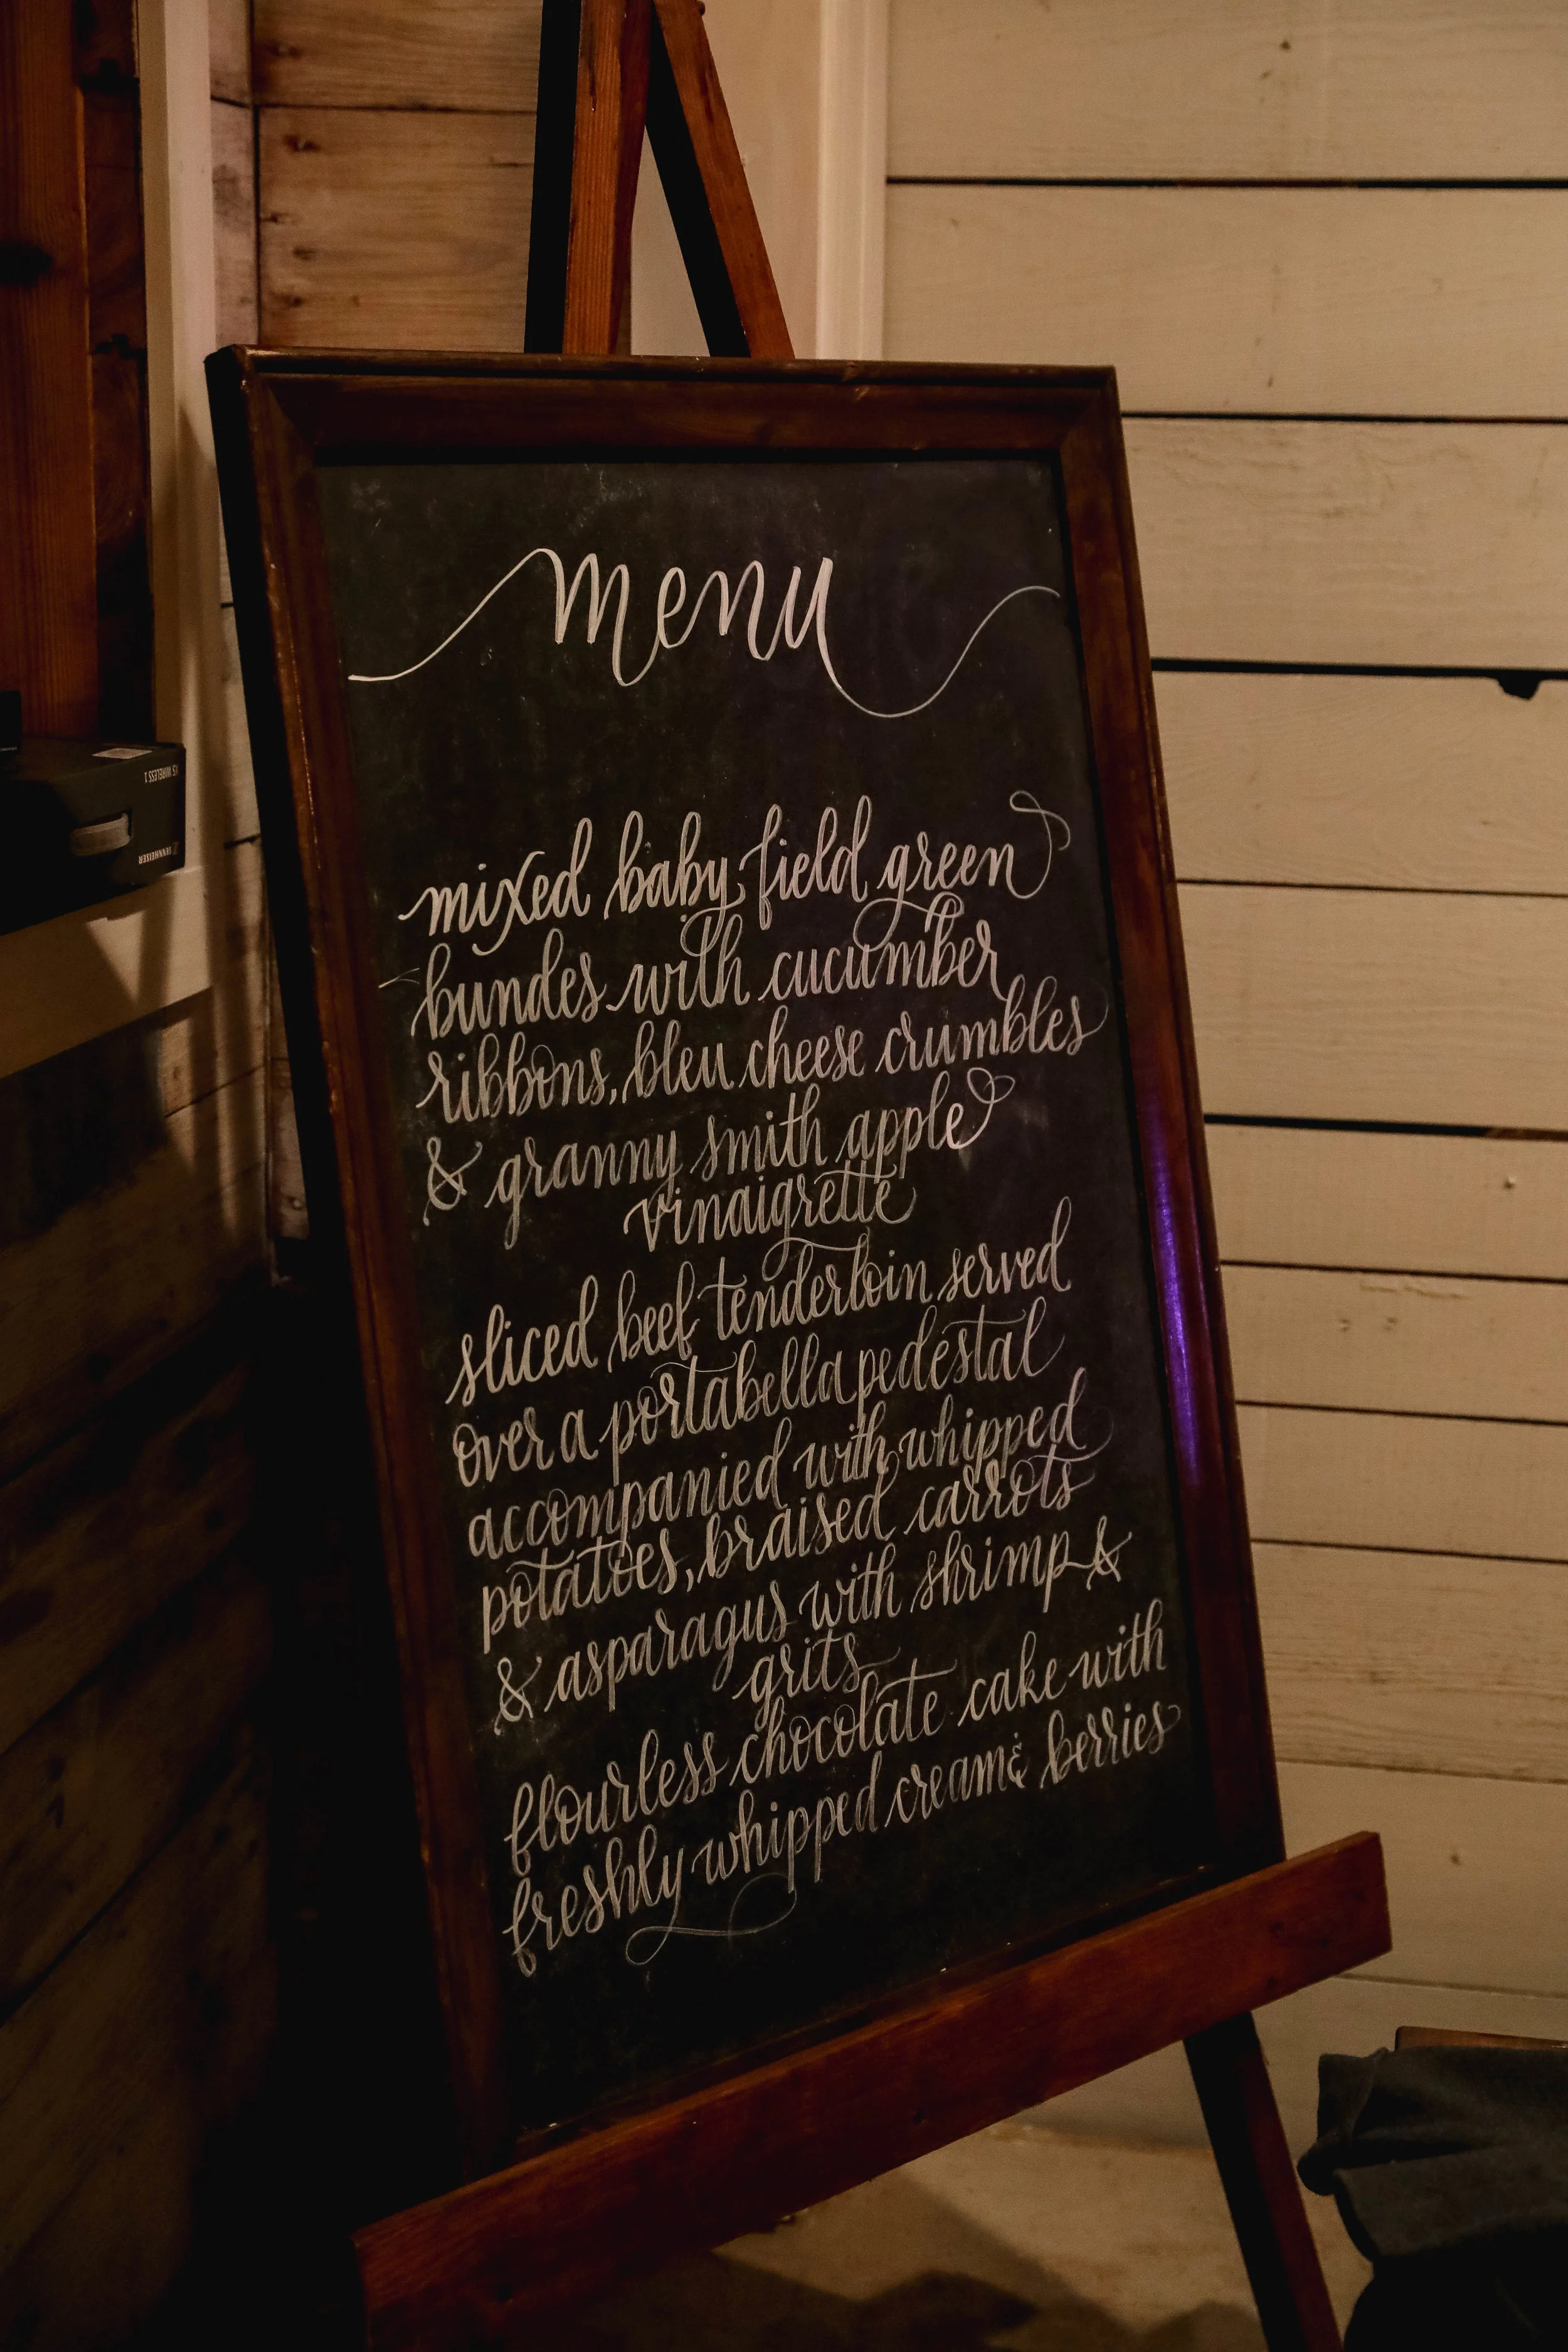 menu
mixed baby field green
bundes with cucumber
ribbons, bleu cheese crumbles
& granny smith apple
vinaigrette
sliced beef tenderloin served
over a portabella pedestal
accompanied with whipped
potatoes, braised carrots
& asparagus with shrimp &
grits
flourless chocolate cake with
freshly whipped cream & berries
WIRELESS 1
SENNHEISER